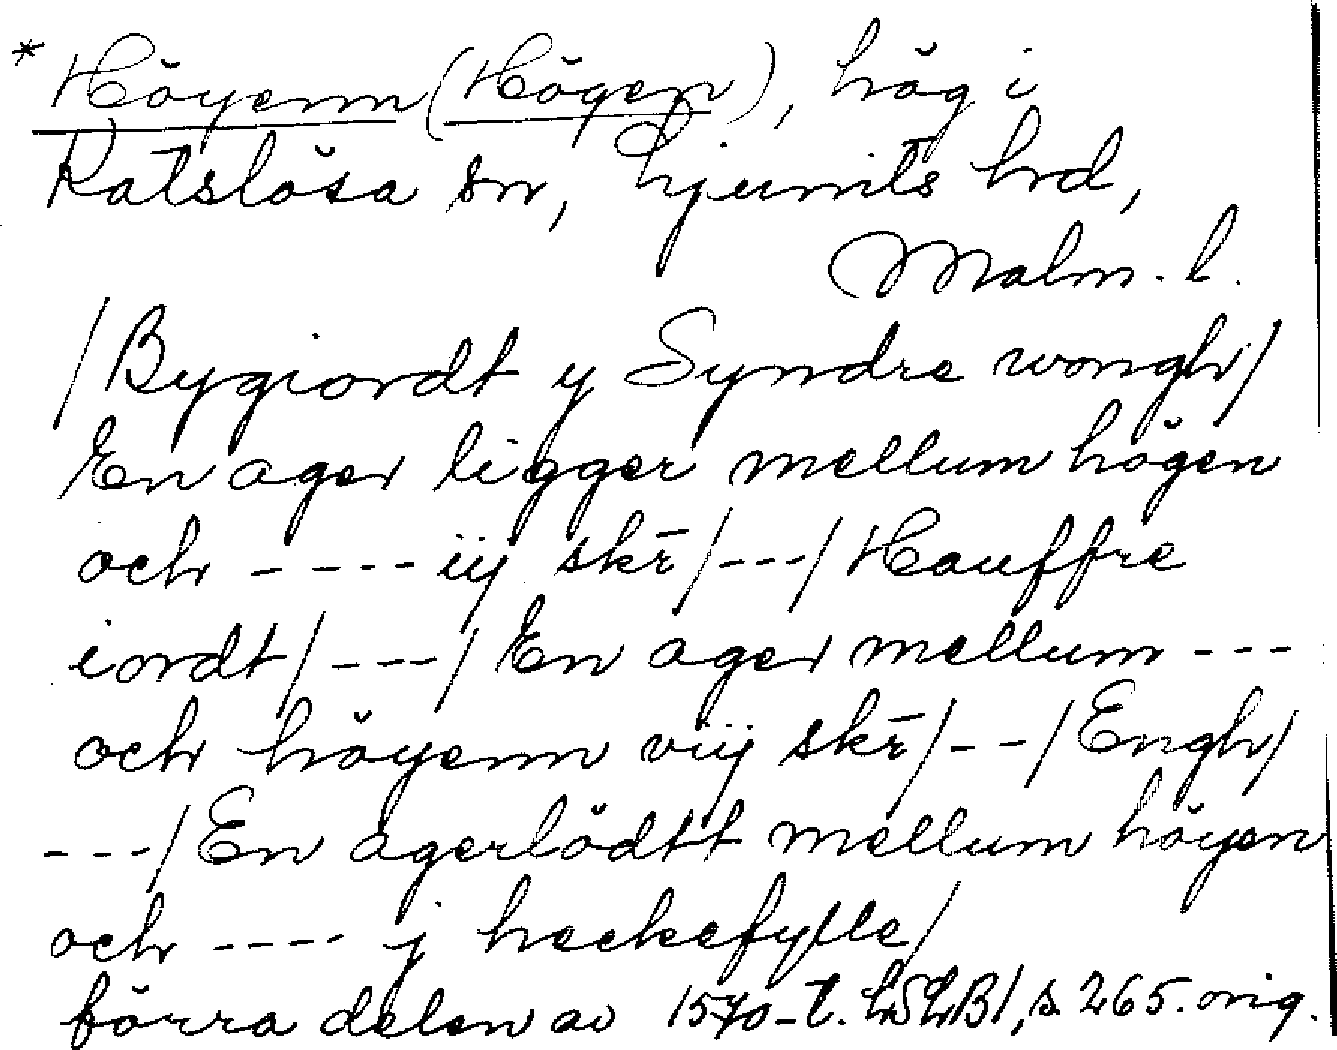 * Höyenn (Högen), hög i
Katslösa sn, Ljunits hd,
Malm. l.
/Bygiordt y Syndre wongh/
En ager ligger mellum högen
och ---- iij skr̄/---/Hauffre
iordt/---/En ager mellum ---
och höyenn viij skr̄/--/Engh/
---/En agerlödtt mellum höyen
och ---- j heckefylle/
förra delen av 1570-t. LSLB1, s. 265. orig.